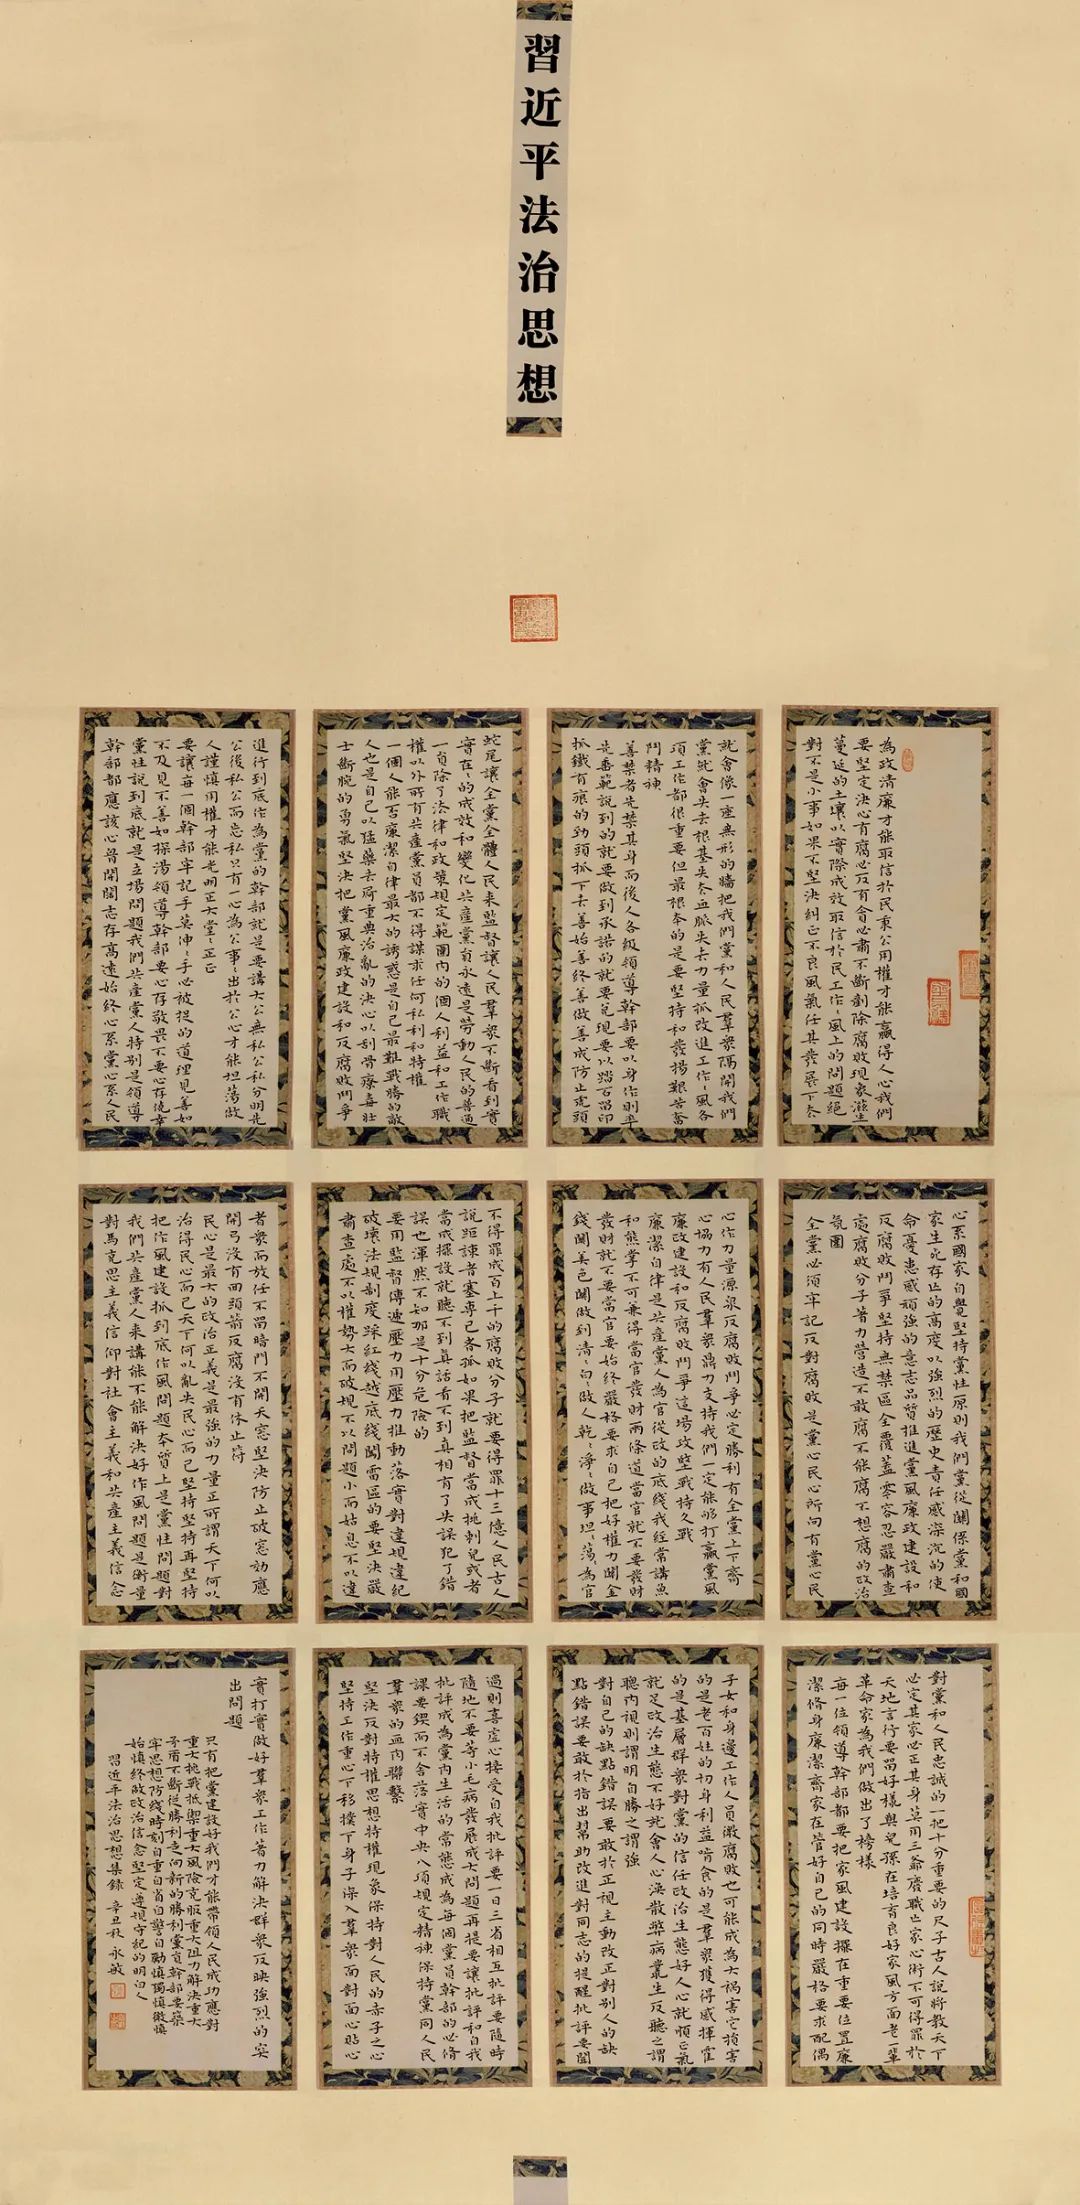 習近平法治思想
為政清廉才能取信於民秉公用權才能贏得人心我們
要堅定決心有腐必反有貪必肅不斷剷除腐敗現象滋生
蔓延的土壤以實際成效取信於民工作〻風上的問題絕
對不是小事如果不堅決糾正不良風氣任其發展下去
就會像一座無形的牆把我們黨和人民羣衆隔開我們
黨就會失去根基失去血脈失去力量抓改進工作〻風各
項工作都很重要但最根本的是要堅持和發揚艱苦奮
鬥精神
善禁者先禁其身而後人各級領導幹部要以身作則率
先垂範說到的就要做到承諾的就要兌現要以踏石留印
抓鐵有痕的勁頭抓下去善始善終善做善成防止虎頭
蛇尾讓全黨全體人民來監督讓人民羣衆不斷看到實
實在〻的成效和變化共產黨員永遠是勞動人民的普通
一員除了法律和政策規定範圍内的個人利益和工作職
權以外所有共產黨員都不得謀求任何私利和特權
一個人能否廉潔自律最大的誘惑是自己最難戰勝的敵
人也是自己以猛藥去疴重典治亂的決心以刮骨療毒壯
士斷腕的勇氣堅決把黨風廉政建設和反腐敗鬥爭
進行到底作為黨的幹部就是要講大公無私公私分明先
公後私公而忘私只有一心為公事〻出於公心才能坦蕩做
人謹慎用權才能光明正大堂〻正正
要讓每一個幹部牢記手莫伸〻手必被捉的道理見善如
不及見不善如探湯領導幹部要心存敬畏不要心存僥幸
黨性說到底就是立場問題我們共產黨人特別是領導
幹部都應該心胸開闊志存高遠始終心系黨心系人民
心系國家自覺堅持黨性原則我們黨從關係黨和國
家生死存亡的高度以強烈的歷史責任感深沉的使
命憂患感頑強的意志品質推進黨風廉政建設和
反腐敗鬥爭堅持無禁區全覆蓋零容忍嚴肅查
處腐敗分子著力營造不敢腐不能腐不想腐的政治
氛圍
全黨必須牢記反對腐敗是黨心民心所向有黨心民
心作力量源泉反腐敗鬥爭必定勝利有全黨上下齊
心協力有人民羣衆鼎力支持我們一定能夠打贏黨風
廉政建設和反腐敗鬥爭這場攻堅戰持久戰
廉潔自律是共產黨人為官從政的底綫我經常講魚
和熊掌不可兼得當官發財兩條道當官就不要發財
發財就不要當官要始終嚴格要求自己把好權力關金
錢關美色關做到清〻白〻做人乾〻淨〻做事坦〻蕩〻為官
不得罪成百上千的腐敗分子就要得罪十三億人民古人
說距諫者塞專己者孤如果把監督當成挑刺兒或者
當成擺設就聽不到真話看不到真相有了失誤犯了錯
誤也渾然不知那是十分危險的
要用監督傳遞壓力用壓力推動落實對違規違紀
破壞法規制度踩紅綫越底綫闖雷區的要堅決嚴
肅查處不以權勢大而破規不以問題小而姑息不以違
者衆而放任不留暗門不開天窗堅決防止破窗効應
開弓沒有回頭箭反腐沒有休止符
民心是最大的政治正義是最強的力量正所謂天下何以
治得民心而已天下何以亂失民心而已堅持堅持再堅持
把作風建設抓到底作風問題本質上是黨性問題對
我們共產黨人來講能不能解決好作風問題是衡量
對馬克思主義信仰對社會主義和共產主義信念
對黨和人民忠誠的一把十分重要的尺子古人說將教天下
必定其家必正其身莫用三爺廢職亡家心術不可得罪於
天地言行要留好樣與兒孫在培育良好家風方面老一輩
革命家為我們做出了榜樣
每一位領導幹部都要把家風建設擺在重要位置廉
潔修身廉潔齊家在管好自己的同時嚴格要求配偶
子女和身邊工作人員微腐敗也可能成為大禍害它損害
的是老百姓的切身利益啃食的是羣衆獲得感揮霍
的是基層群衆對黨的信任政治生態好人心就順正氣
就足政治生態不好就會人心渙散弊病叢生反聽之謂
聰内視則謂明自勝之謂強
對自己的缺點錯誤要敢於正視主動改正對別人的缺
點錯誤要敢於指出幫助改進對同志的提醒批評要聞
過則喜虛心接受自我批評要一日三省相互批評要隨時
隨地不要等小毛病發展成大問題再提要讓批評和自我
批評成為黨内生活的常態成為每個黨員幹部的必修
課要鍥而不舍落實中央八項規定精神保持黨同人民
羣衆的血肉聯繫
堅決反對特權思想特權現象保持對人民的赤子之心
堅持工作重心下移撲下身子深入羣衆面對面心貼心
實打實做好羣衆工作著力解決群衆反映強烈的突
出問題
只有把黨建設好我們才能帶領人民成功應對
重大挑戰抵禦重大風險克服重大阻力解決重大
矛盾不斷從勝利走向新的勝利黨員幹部要築
牢思想防綫時刻自重自省自警自勵慎獨慎微慎
始慎終做政治信念堅定遵規守紀的明白人
習近平法治思想集錄 辛丑秋 永敏